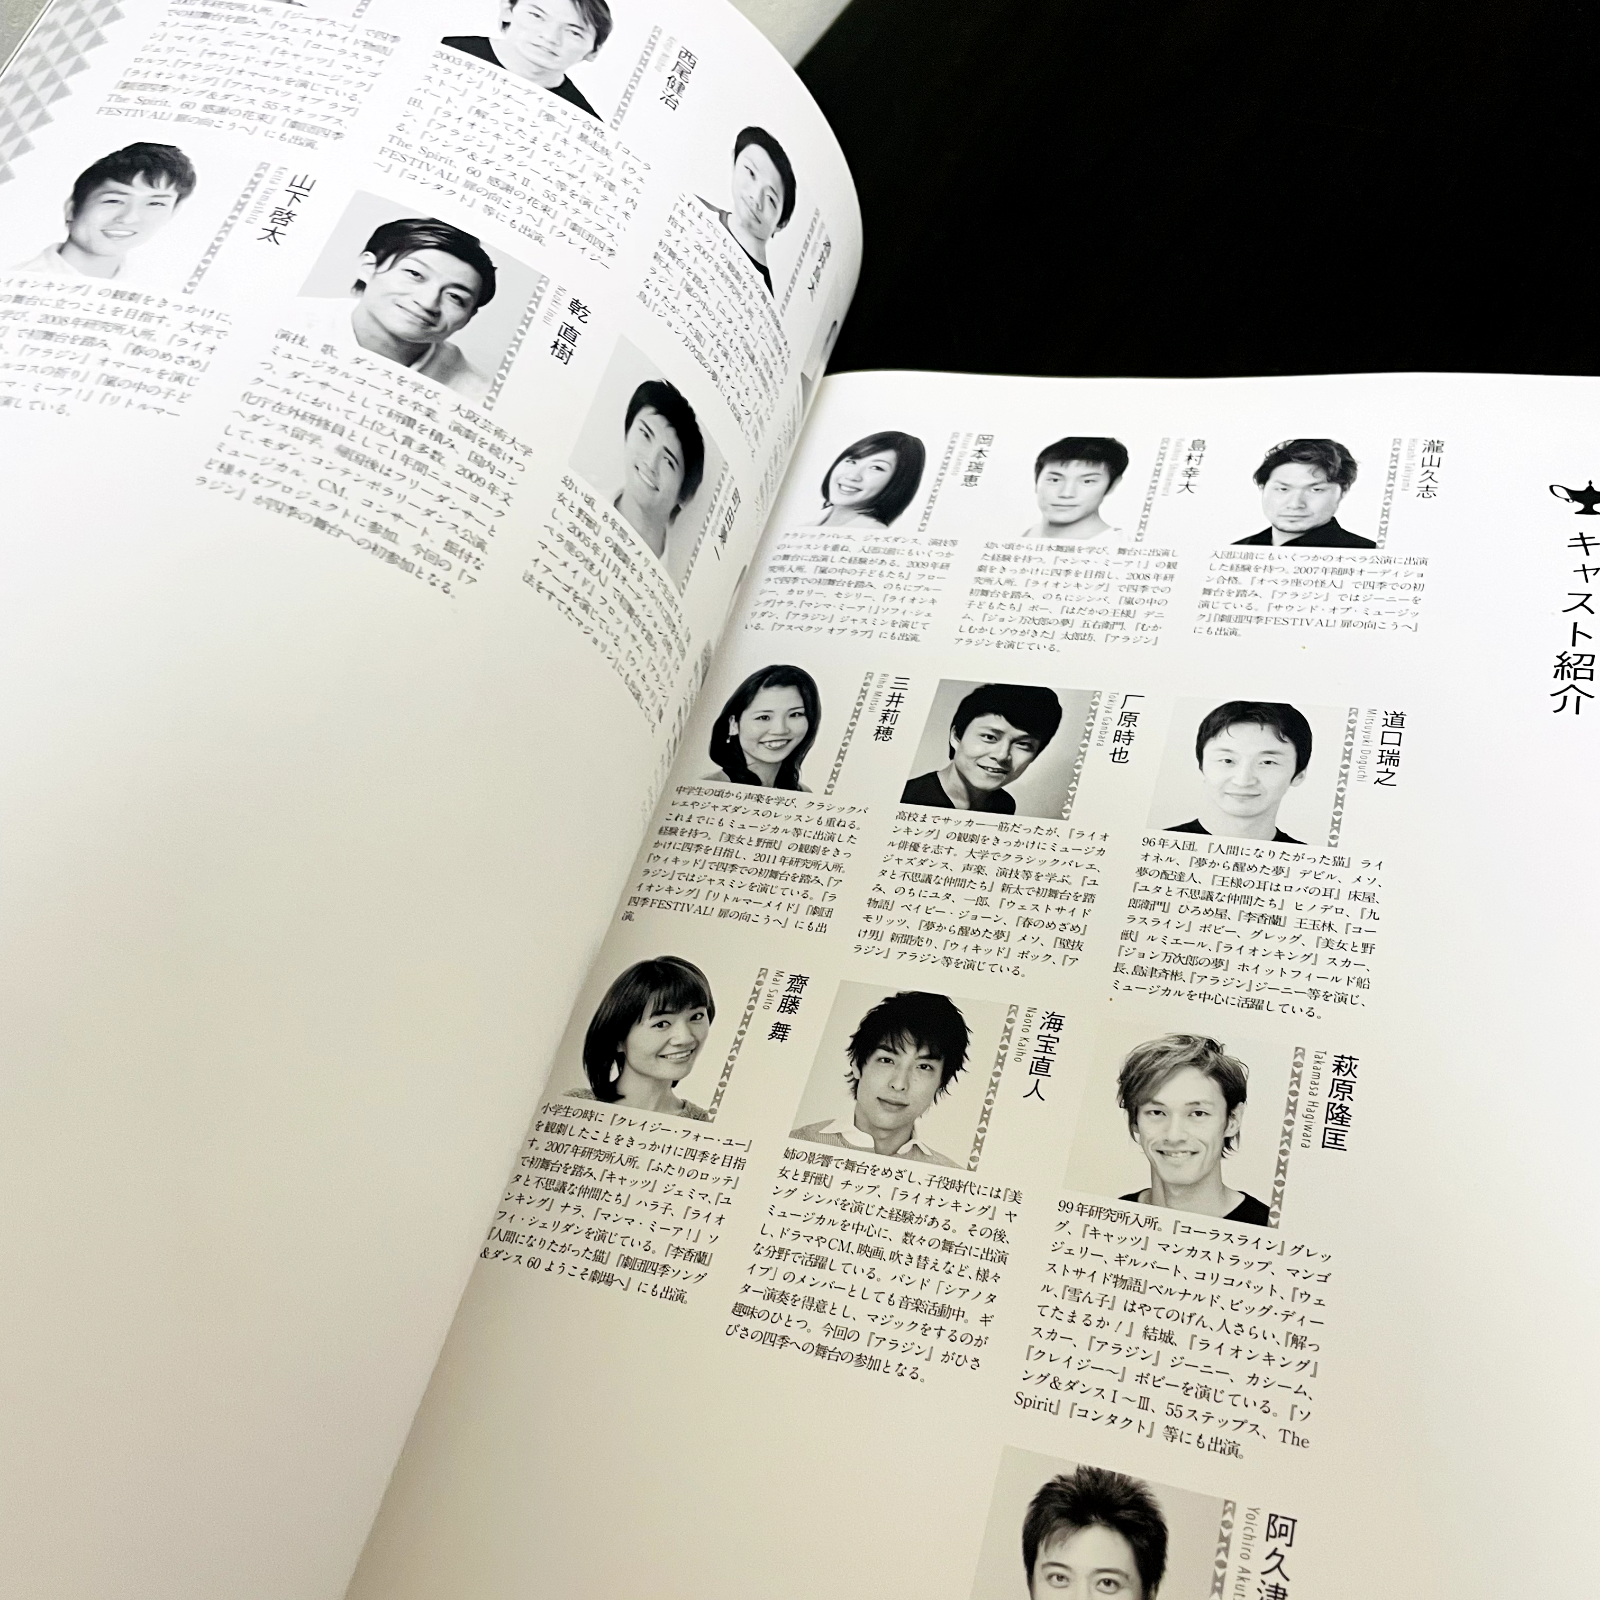 キャスト紹介
瀧山久志
Hisashi Takiyama
入団以前にもいくつかのオペラ公演に出演
した経験を持つ。2007年随時オーディショ
ン合格。『オペラ座の怪人』で四季での初
舞台を踏み、『アラジン』ではジーニーを
演じている。『サウンド・オブ・ミュージッ
ク』『劇団四季FESTIVAL! 扉の向こうへ』
にも出演。
道口瑞之
Mitsuyuki Doguchi
96年入団。『人間になりたがった猫』ライ
オネル、『夢から醒めた夢』デビル、メソ、
夢の配達人、『王様の耳はロバの耳』床屋、
『ユタと不思議な仲間たち』ヒノデロ、『九
郎衛門』ひろめ屋、『李香蘭』王玉林、『コー
ラスライン』ボビー、グレッグ、『美女と野
獣』ルミエール、『ライオンキング』スカー、
『ジョン万次郎の夢』ホイットフィールド船
長、島津斉彬、『アラジン』ジーニー等を演じ、
ミュージカルを中心に活躍している。
萩原隆匡
Takamasa Hagiwara
99年研究所入所。『コーラスライン』グレッ
グ、『キャッツ』マンカストラップ、マンゴ
ジェリー、ギルバート、コリコパット、『ウェ
ストサイド物語』ベルナルド、ビッグ・ディー
ル、『雪ん子』はやてのげん、人さらい、『解っ
てたまるか！』結城、『ライオンキング』
スカー、『アラジン』ジーニー、カシーム、
『クレイジー〜』ボビーを演じている。『ソ
ング＆ダンスⅠ〜Ⅲ、55ステップス、The
Spirit』『コンタクト』等にも出演。
阿久津
Yoichiro Akut
島村幸大
幼い頃から日本舞踊を学び、舞台に出演し
た経験を持つ。『マンマ・ミーア！』の観
劇をきっかけに四季を目指し、2008年研
究所入所。『ライオンキング』で四季での
初舞台を踏み、のちにシンバ、『嵐の中の
子どもたち』ボー、『はだかの王様』デニ
ム、『ジョン万次郎の夢』五右衛門、『むか
しむかしゾウがきた』太郎坊、『アラジン』
アラジンを演じている。
厂原時也
Tokiya Ganbara
高校までサッカー一筋だったが、『ライオ
ンキング』の観劇をきっかけにミュージカ
ル俳優を志す。大学でクラシックバレエ、
ジャズダンス、声楽、演技等を学ぶ。『ユ
タと不思議な仲間たち』新太で初舞台を踏
み、のちにユタ、一郎、『ウェストサイド
物語』ベイビー・ジョーン、『春のめざめ』
モリッツ、『夢から醒めた夢』メソ、『壁抜
け男』新聞売り、『ウィキッド』ボック、『ア
ラジン』アラジン等を演じている。
海宝直人
Naoto Kaiho
姉の影響で舞台をめざし、子役時代には『美
女と野獣』チップ、『ライオンキング』ヤ
ング シンバを演じた経験がある。その後、
ミュージカルを中心に、数々の舞台に出演
し、ドラマやCM、映画、吹き替えなど、様々
な分野で活躍している。バンド「シアノタ
イプ」のメンバーとしても音楽活動中。ギ
ター演奏を得意とし、マジックをするのが
趣味のひとつ。今回の『アラジン』がひさ
びさの四季への舞台の参加となる。
岡本瑞恵
クラシックバレエ、ジャズダンス、演技等
のレッスンを重ね、入団以前にもいくつか
の舞台に出演した経験がある。2009年研
究所入所。『嵐の中の子どもたち』フロー
ラで四季での初舞台を踏み、のちにブルー
シー、カロリー、セシリー、『ライオンキ
ング』ナラ、『マンマ・ミーア！』ソフィ・シェ
リダン、『アラジン』ジャスミンを演じて
いる。『アスペクツ オブ ラブ』にも出演。
三井莉穂
Riho Mitsui
中学生の頃から声楽を学び、クラシックバ
レエやジャズダンスのレッスンも重ねる。
これまでにもミュージカル等に出演した
経験を持つ。『美女と野獣』の観劇をきっ
かけに四季を目指し、2011年研究所入所。
『ウィキッド』で四季での初舞台を踏み、『ア
ラジン』ではジャスミンを演じている。『ラ
イオンキング』『リトルマーメイド』『劇団
四季FESTIVAL! 扉の向こうへ』にも出
演。
齋藤 舞
Mai Saito
小学生の時に『クレイジー・フォー・ユー』
を観劇したことをきっかけに四季を目指
す。2007年研究所入所。『ふたりのロッテ』
で初舞台を踏み、『キャッツ』ジェミマ、『ユ
タと不思議な仲間たち』ハラ子、『ライオ
ンキング』ナラ、『マンマ・ミーア！』ソ
フィ・シェリダンを演じている。『李香蘭』
『人間になりたがった猫』『劇団四季ソング
＆ダンス 60 ようこそ劇場へ』にも出演。
西尾健治
2003年7月オーディション合格。『コーラ
スライン』リチー、『夢〜』暴走族、『ウェ
田、『ライオンキング』バンザイ、ティモ
ン、『アラジン』カシーム等を演じてい
る。『ソング＆ダンスⅡ、55ステップス、
The Spirit、60 感謝の花束』『劇団四季
FESTIVAL! 扉の向こうへ』『クレイジー
〜』『コンタクト』等にも出演。
乾 直樹
Naoki Inui
演技、歌、ダンスを学び、大阪芸術大学
ミュージカルコースを卒業。演劇を続けつ
つ、ダンサーとして研鑽を積み、国内コン
クールにおいて上位入賞多数。2009年文
化庁在外研修員として1年間ニューヨーク
へダンス留学。帰国後はフリーダンサーと
して、モダン、コンテンポラリーダンス公演、
ミュージカル、CM、コンサート、振付な
ど様々なプロジェクトに参加。今回の『ア
ラジン』が四季の舞台への初参加となる。
山下啓太
Keita Yamashita
イオンキング』の観劇をきっかけに、
の舞台に立つことを目指す。大学で
学び、2008年研究所入所。『ライオ
』で初舞台を踏み、『春のめざめ』
、『アラジン』オマールを演じ
ルコスの祈り』『嵐の中の子ど
ンマ・ミーア！』『リトルマー
演している。
での初舞台を踏み、『ウェストサイド物語』
スノーボーイ、ニブルス、『コーラスライ
ン』マイク、ポール、『キャッツ』マンゴ
ジェリー、『サウンド・オブ・ミュージック』
ロルフ、『アラジン』オマールを演じている。
『ライオンキング』『アスペクツ オブ ラブ』
『劇団四季ソング＆ダンス 55ステップス、
The Spirit、60 感謝の花束』『劇団四季
FESTIVAL! 扉の向こうへ』にも出演。